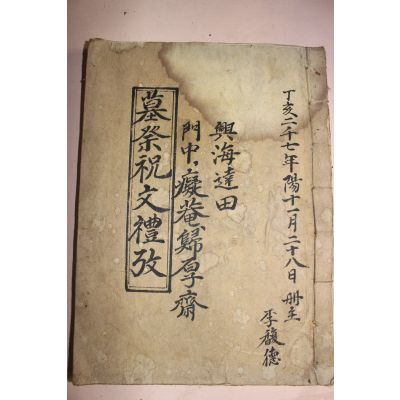 丁亥二千七年陽十一月二十八日 册主
李馥德
興海達田
門中，癡菴歸厚齋
墓祭祝文禮攷